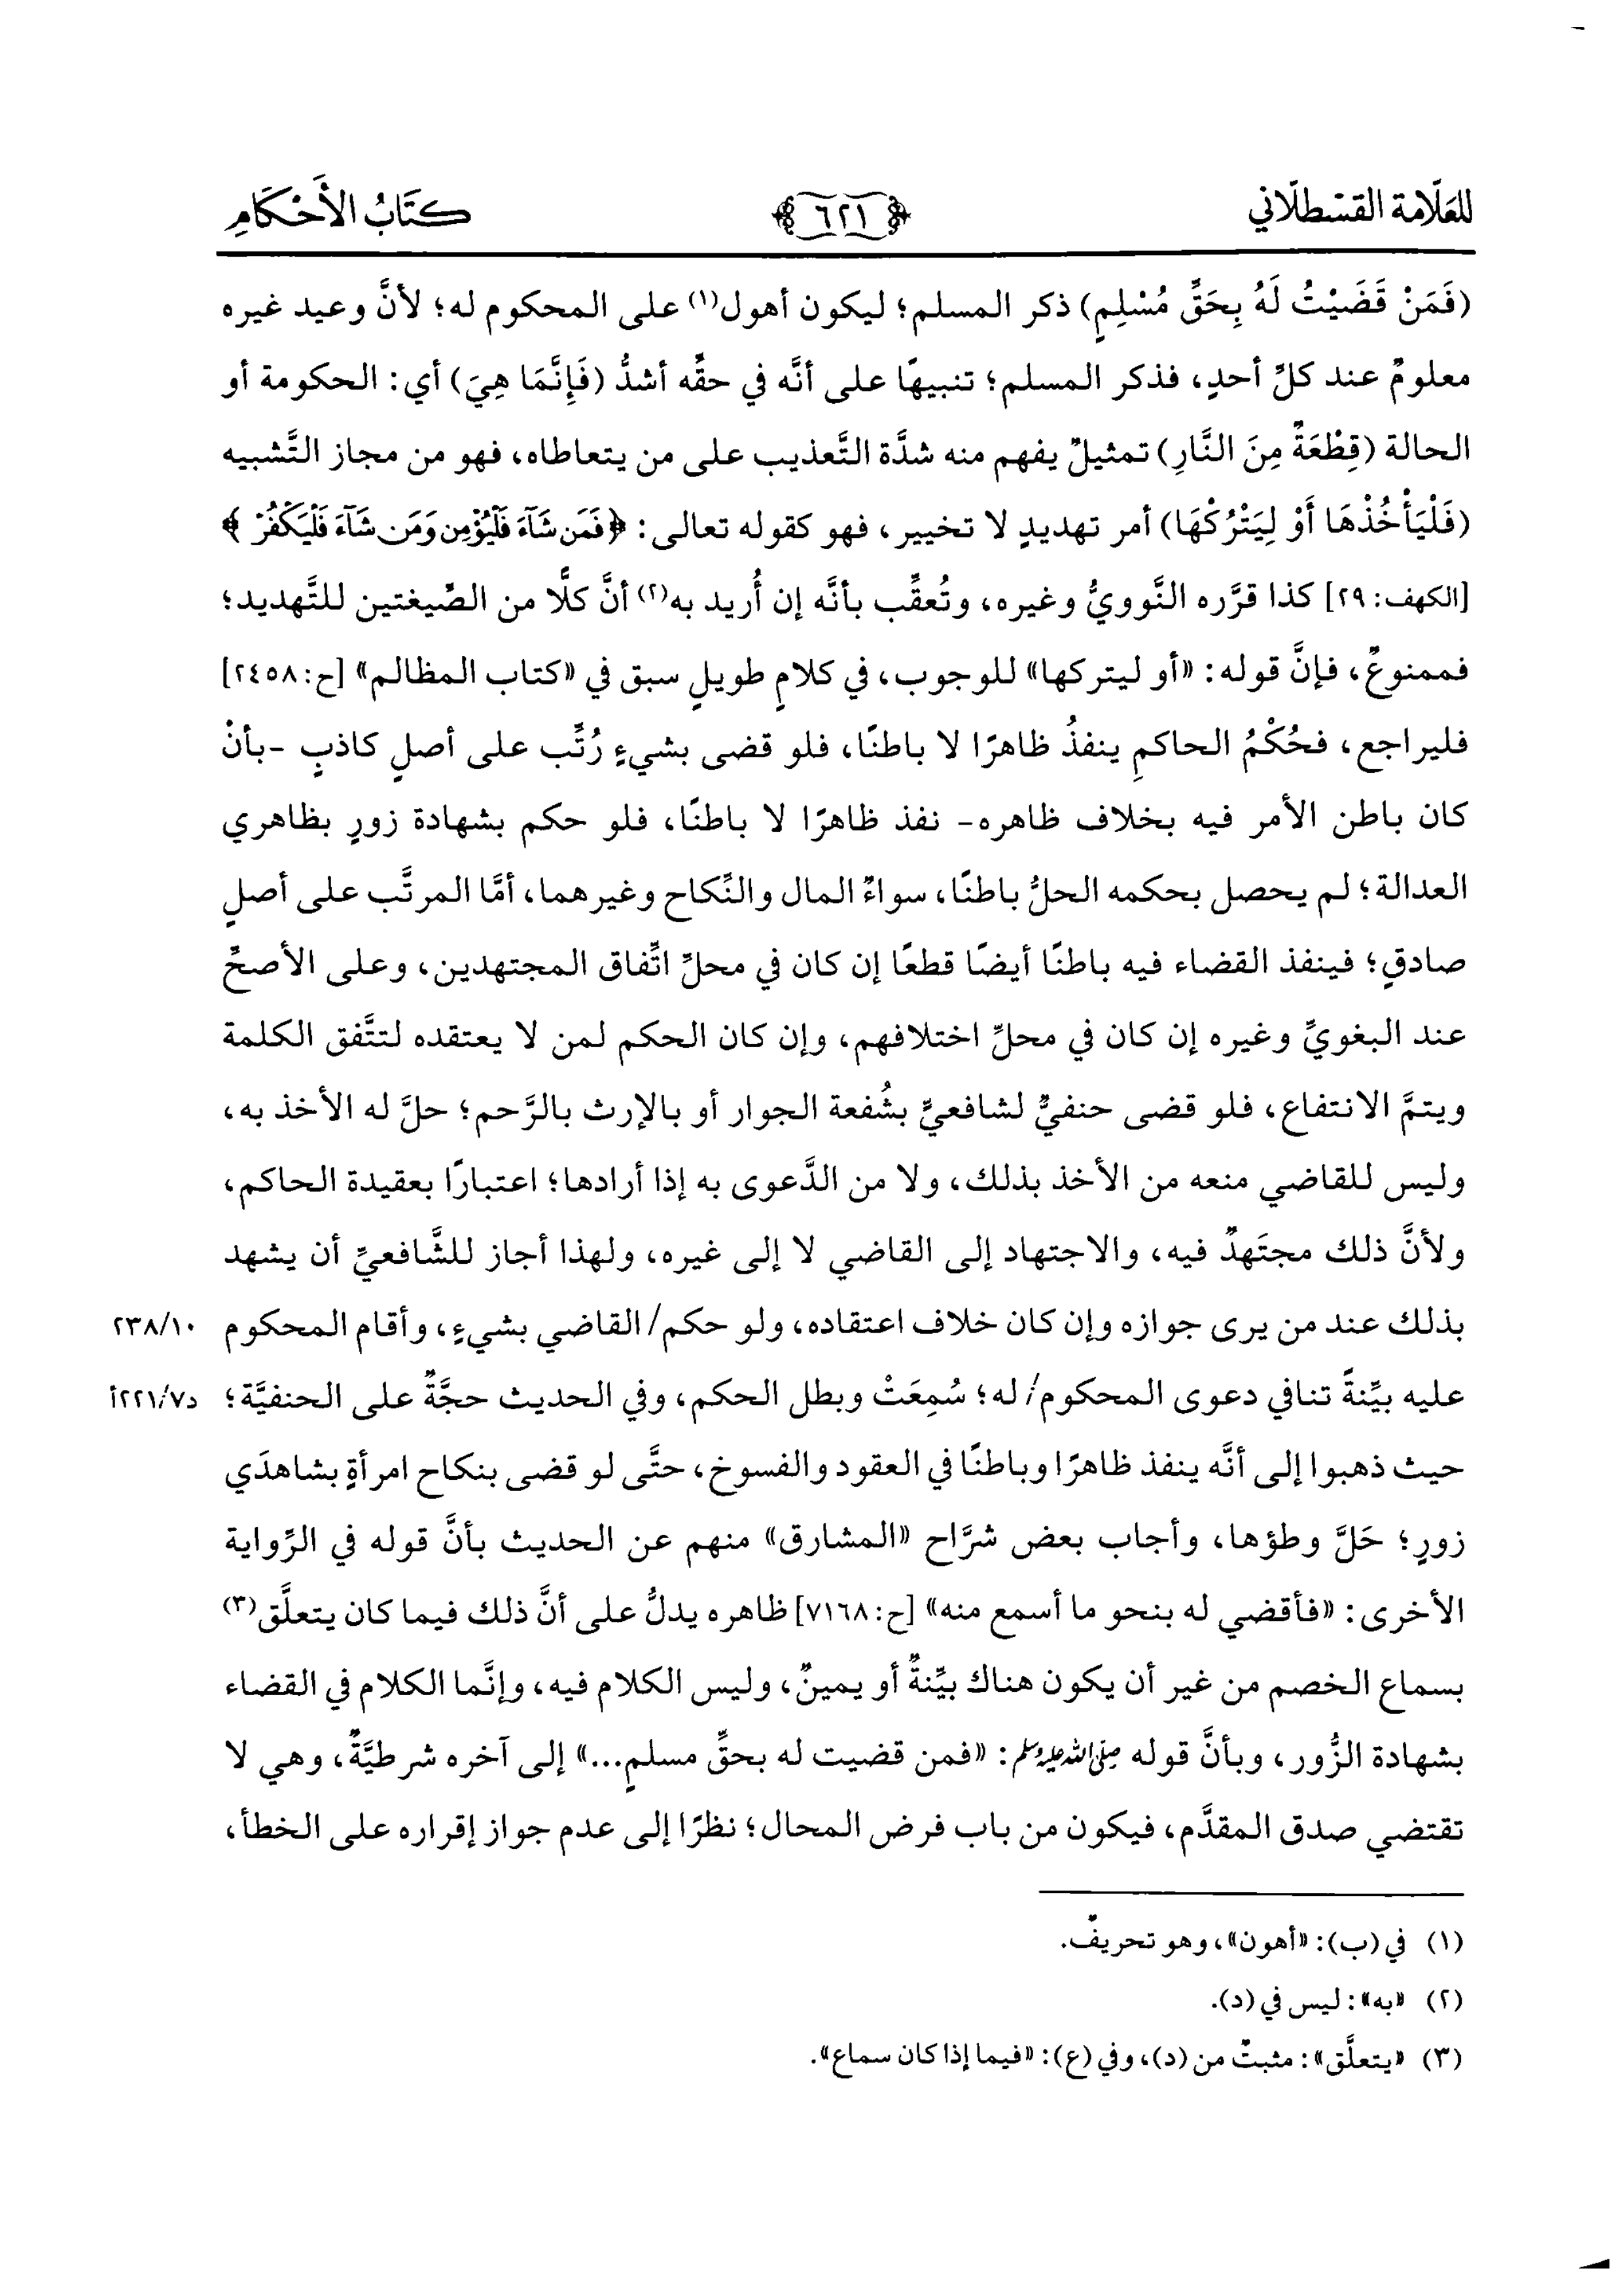 للعلّامة القسطلّاني ٦٢١ كتَابُ الأَحْكَامِ
(فَمَنْ قَضَيْتُ لَهُ بِحَقِّ مُسْلِمٍ) ذكر المسلم؛ ليكون أهول(١) على المحكوم له؛ لأنَّ وعيد غيره
معلومٌ عند كلِّ أحدٍ، فذكر المسلم؛ تنبيهًا على أنَّه في حقِّه أشدُّ (فَإِنَّمَا هِيَ) أي: الحكومة أو
الحالة (قِطْعَةٌ مِنَ النَّارِ) تمثيلٌ يفهم منه شدَّة التَّعذيب على من يتعاطاه، فهو من مجاز التَّشبيه
(فَلْيَأْخُذْهَا أَوْ لِيَتْرُكْهَا) أمر تهديدٍ لا تخيير، فهو كقوله تعالى: ﴿فَمَن شَآءَ فَلْيُؤْمِن وَمَن شَآءَ فَلْيَكْفُرْ﴾
[الكهف: ٢٩] كذا قرَّره النَّوويُّ وغيره، وتُعقِّب بأنَّه إن أُريد به(٢) أنَّ كلًّا من الصِّيغتين للتَّهديد؛
فممنوعٌ، فإنَّ قوله: «أو ليتركها» للوجوب، في كلامٍ طويلٍ سبق في «كتاب المظالم» [ح: ٢٤٥٨]
فليراجع، فحُكْمُ الحاكمِ ينفذُ ظاهرًا لا باطنًا، فلو قضى بشيءٍ رُتِّب على أصلٍ كاذبٍ -بأنْ
كان باطن الأمر فيه بخلاف ظاهره- نفذ ظاهرًا لا باطنًا، فلو حكم بشهادة زورٍ بظاهري
العدالة؛ لم يحصل بحكمه الحلُّ باطنًا، سواءٌ المال والنِّكاح وغيرهما، أمَّا المرتَّب على أصلٍ
صادقٍ؛ فينفذ القضاء فيه باطنًا أيضًا قطعًا إن كان في محلِّ اتِّفاق المجتهدين، وعلى الأصحِّ
عند البغويِّ وغيره إن كان في محلِّ اختلافهم، وإن كان الحكم لمن لا يعتقده لتتَّفق الكلمة
ويتمَّ الانتفاع، فلو قضى حنفيٌّ لشافعيٍّ بشُفعة الجوار أو بالإرث بالرَّحم؛ حلَّ له الأخذ به،
وليس للقاضي منعه من الأخذ بذلك، ولا من الدَّعوى به إذا أرادها؛ اعتبارًا بعقيدة الحاكم،
ولأنَّ ذلك مجتَهدٌ فيه، والاجتهاد إلى القاضي لا إلى غيره، ولهذا أجاز للشَّافعيِّ أن يشهد
بذلك عند من يرى جوازه وإن كان خلاف اعتقاده، ولو حكم/ القاضي بشيءٍ، وأقام المحكوم ٢٣٨/١٠
عليه بيِّنةً تنافي دعوى المحكوم/ له؛ سُمِعَتْ وبطل الحكم، وفي الحديث حجَّةٌ على الحنفيَّة؛ د٢٢١/٧أ
حيث ذهبوا إلى أنَّه ينفذ ظاهرًا وباطنًا في العقود والفسوخ، حتَّى لو قضى بنكاح امرأةٍ بشاهدَي
زورٍ؛ حَلَّ وطؤها، وأجاب بعض شرَّاح «المشارق» منهم عن الحديث بأنَّ قوله في الرِّواية
الأخرى: «فأقضي له بنحو ما أسمع منه» [ح: ٧١٦٨] ظاهره يدلُّ على أنَّ ذلك فيما كان يتعلَّق(٣)
بسماع الخصم من غير أن يكون هناك بيِّنةٌ أو يمينٌ، وليس الكلام فيه، وإنَّما الكلام في القضاء
بشهادة الزُّور، وبأنَّ قوله صلى الله عليه وسلم: «فمن قضيت له بحقِّ مسلمٍ...» إلى آخره شرطيَّةٌ، وهي لا
تقتضي صدق المقدَّم، فيكون من باب فرض المحال؛ نظرًا إلى عدم جواز إقراره على الخطأ،
(١) في (ب): «أهون»، وهو تحريفٌ.
(٢) «به»: ليس في (د).
(٣) «يتعلَّق»: مثبتٌ من (د)، وفي (ع): «فيما إذا كان سماع».